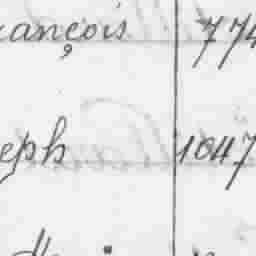 rançois 774
eph 1047